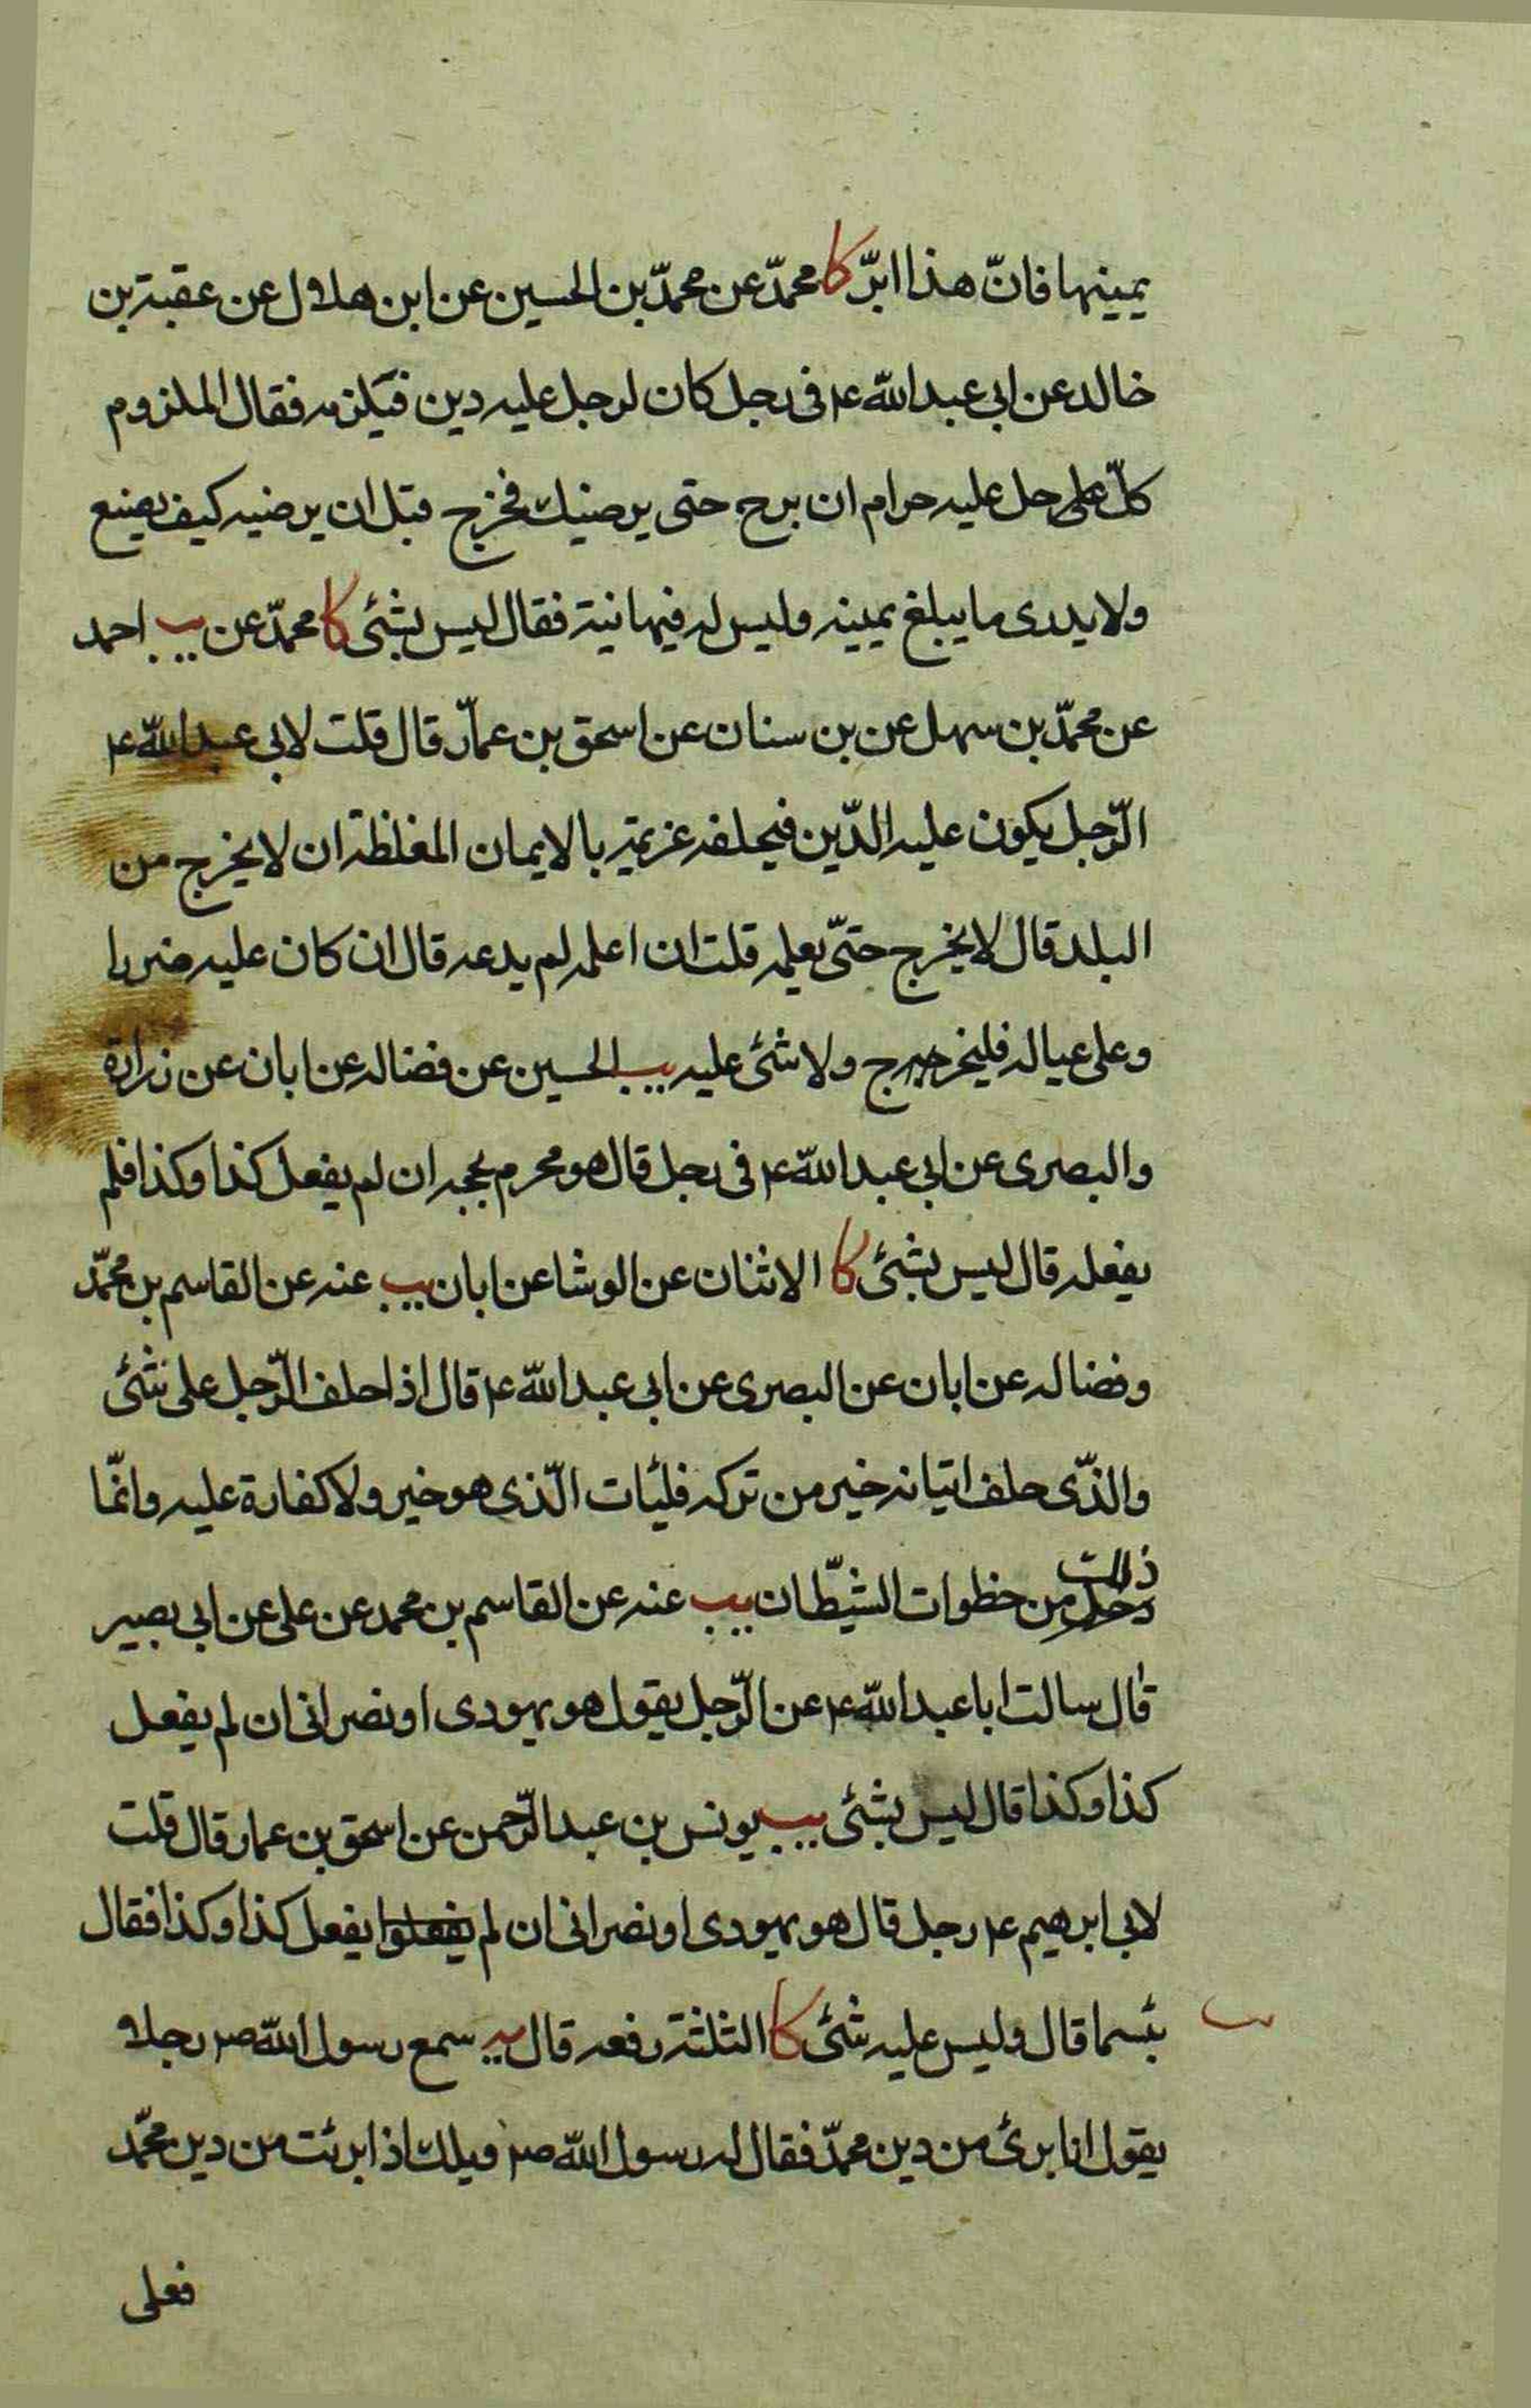 يمينها فانّ هذا ابرّ كا محمّد عن محمّد بن الحسين عن ابن هلال عن عقبة بن
خالد عن ابى عبد الله ع فى رجل كان لرجل عليه دين فيَلزمه فقال الملزوم
كلّ حل عليه حرام ان برح حتى يرضيك فخرج قبل ان يرضيه كيف يصنع
ولا يدرى ما يبلغ يمينه وليس له فيها نية فقال ليس بشئى كا محمّد عن يب احمد
عن محمّد بن سهل عن بن سنان عن اسحق بن عمّار قال قلت لابى عبد الله ع
الرّجل يكون عليه الدّين فيحلفه غريمه بالايمان المغلظة ان لا يخرج من
البلد قال لا يخرج حتّى يعلمه قلت ان اعلمه لم يدعه قال ان كان عليه ضررا
وعلى عياله فليخرج ولا شئى عليه يب الحسين عن فضاله عن ابان عن زرارة
والبصرى عن ابى عبد الله ع فى رجل قال هو محرم بحجه ان لم يفعل كذا وكذا فلم
يفعله قال ليس بشئى كا الاثنان عن الوشا عن ابان يب عنه عن القاسم بن محمّد
وفضاله عن ابان عن البصرى عن ابى عبد الله ع قال اذا حلف الرّجل على شئى
والذّى حلف اتيانه خير من تركه فلئات الّذى هو خير ولا كفارة عليه وانّما
ذلك من خطوات الشيّطان يب عنه عن القاسم بن محمد عن على عن ابى بصير
قال سالت ابا عبد الله ع عن الرّجل يقول هو يهودى او نصرانى ان لم يفعل
كذا وكذا قال ليس بشئى يب يونس بن عبد الرّحمن عن اسحق بن عمار قال قلت
لابى ابرهيم ع رجل قال هو يهودى او نصرانى ان لم يفعلوا يفعل كذا وكذا فقال
بئسما قال وليس عليه شئى كا الثلثة رفعه قال يه سمع رسول الله ص رجلا
يقول انا برئ من دين محمّد فقال له رسول الله ص ويلك اذا برئت من دين محمّد
فعلى